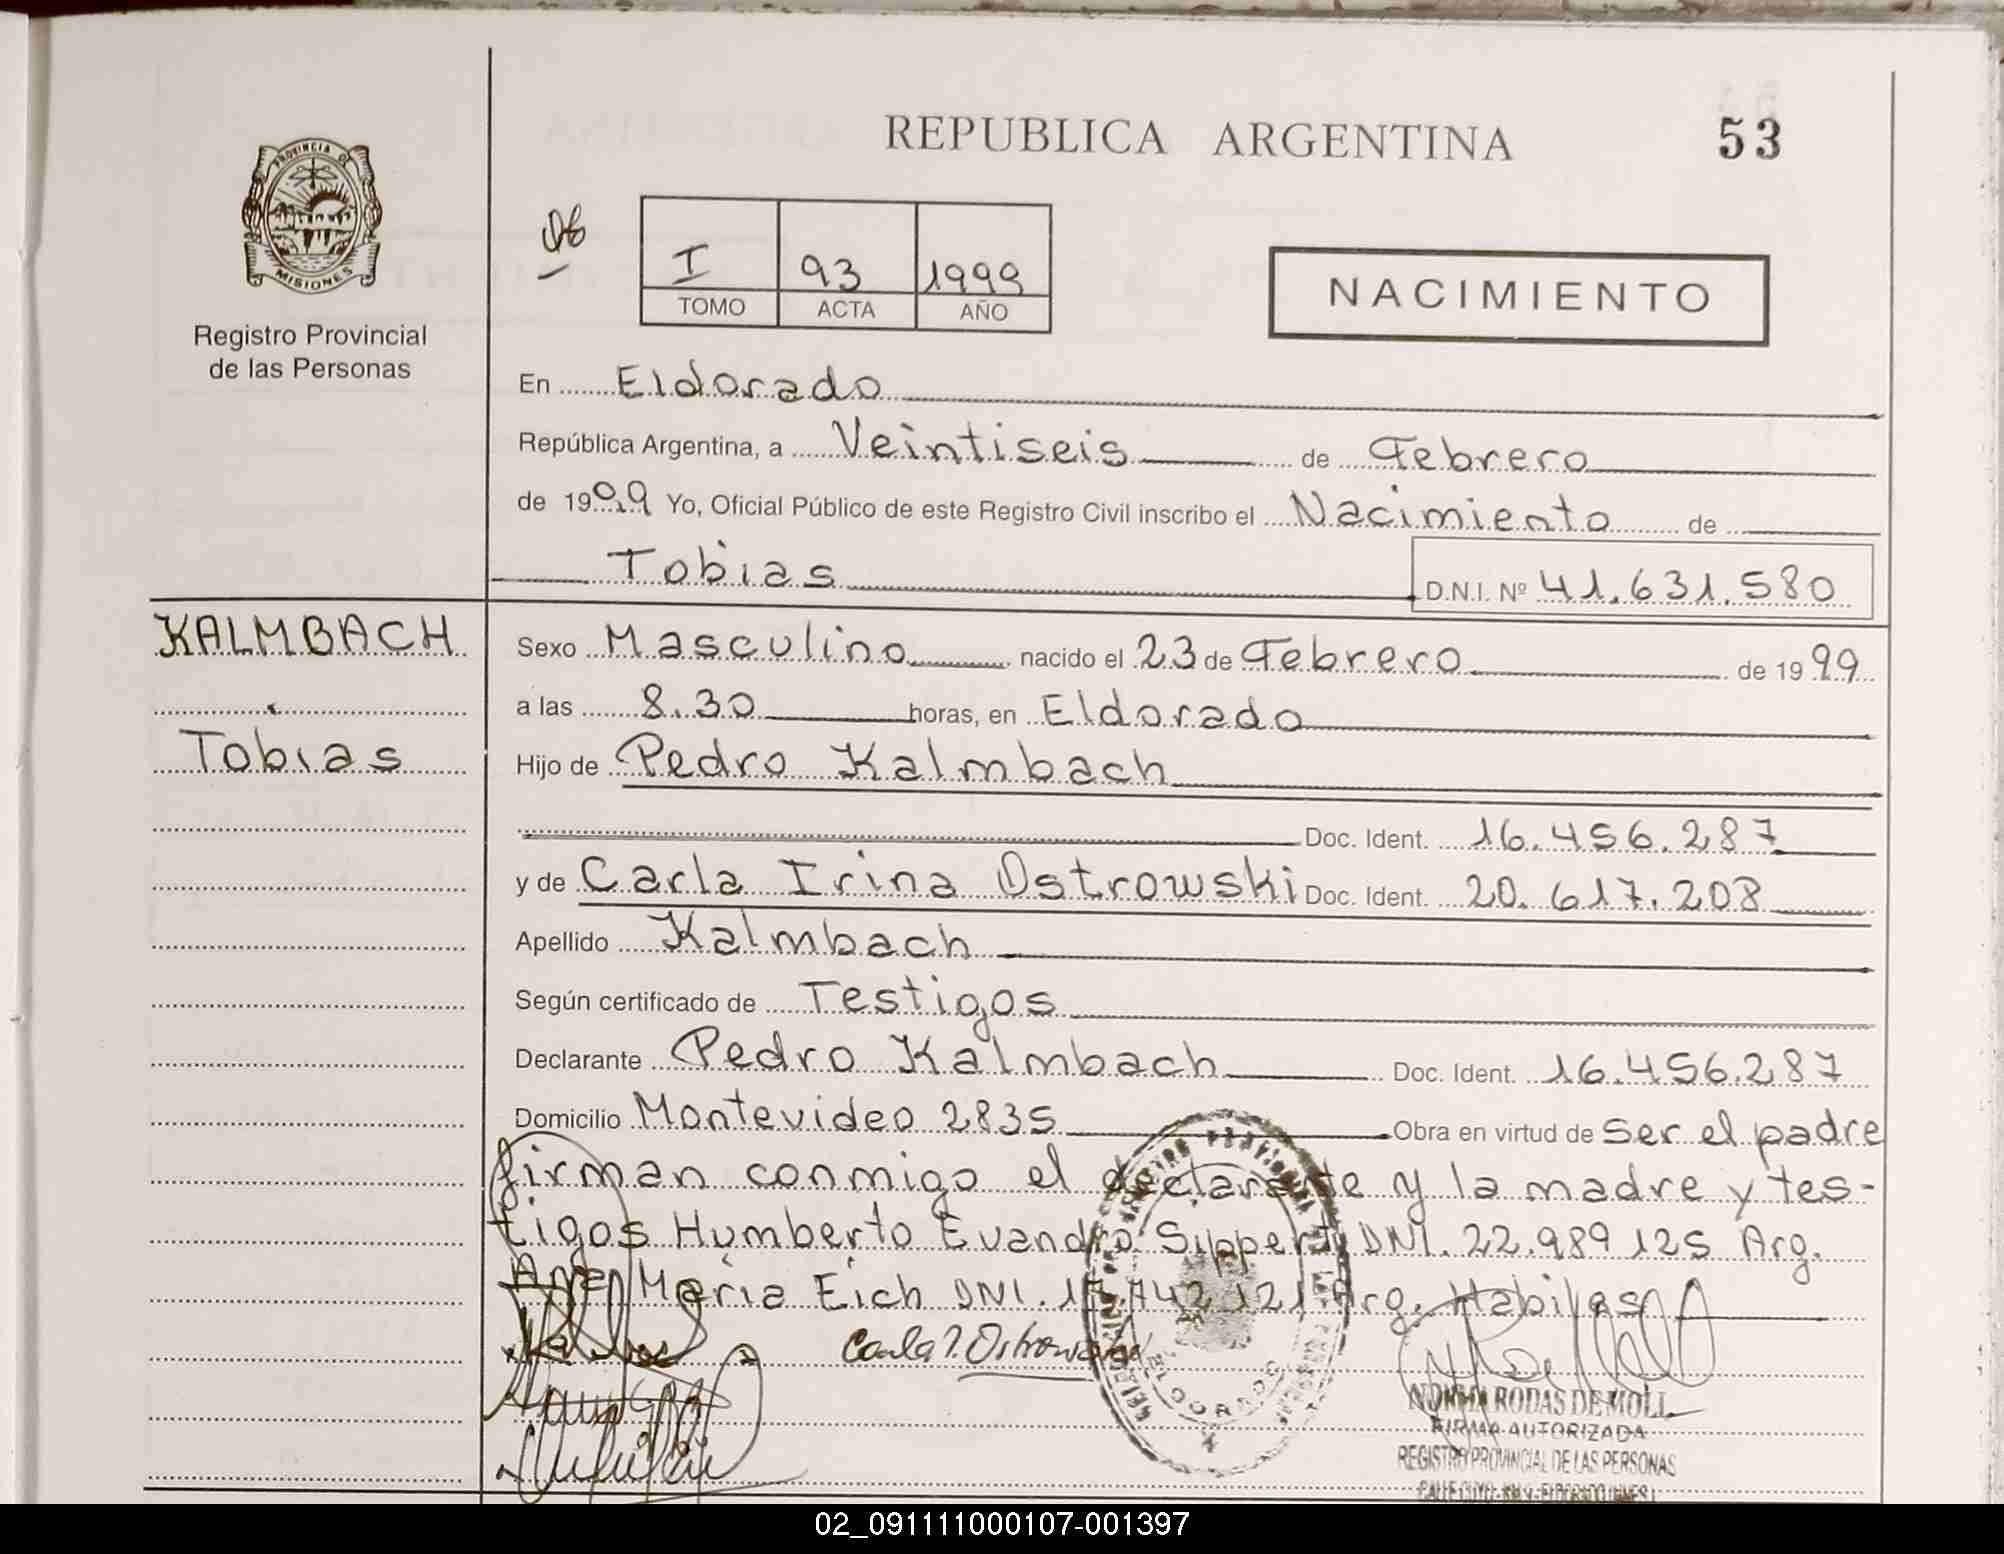 REPUBLICA ARGENTINA 53
PROVINCIA DE
MISIONES
Registro Provincial
de las Personas
I 93 1999
TOMO ACTA AÑO
NACIMIENTO
En Eldorado
República Argentina, a Veintiseis de Febrero
de 1999 Yo, Oficial Público de este Registro Civil inscribo el Nacimiento de
Tobias D.N.I. Nº 41.631.580
KALMBACH
Tobias
Sexo Masculino nacido el 23 de Febrero de 1999
a las 8.30 horas, en Eldorado
Hijo de Pedro Kalmbach
Doc. Ident. 16.456.287
y de Carla Irina Ostrowski Doc. Ident. 20.617.208
Apellido Kalmbach
Según certificado de Testigos
Declarante Pedro Kalmbach Doc. Ident. 16.456.287
Domicilio Montevideo 2835 Obra en virtud de Ser el padre
firman conmigo el declarante y la madre y tes-
tigos Humberto Evandro Sippert DNI. 22.989125 Arg.
Maria Eich DNI. Arg. Habiles
Carla I. Ostrowski
NORMA RODAS DE MOLL
FIRMA AUTORIZADA
REGISTRO PROVINCIAL DE LAS PERSONAS
02_091111000107-001397